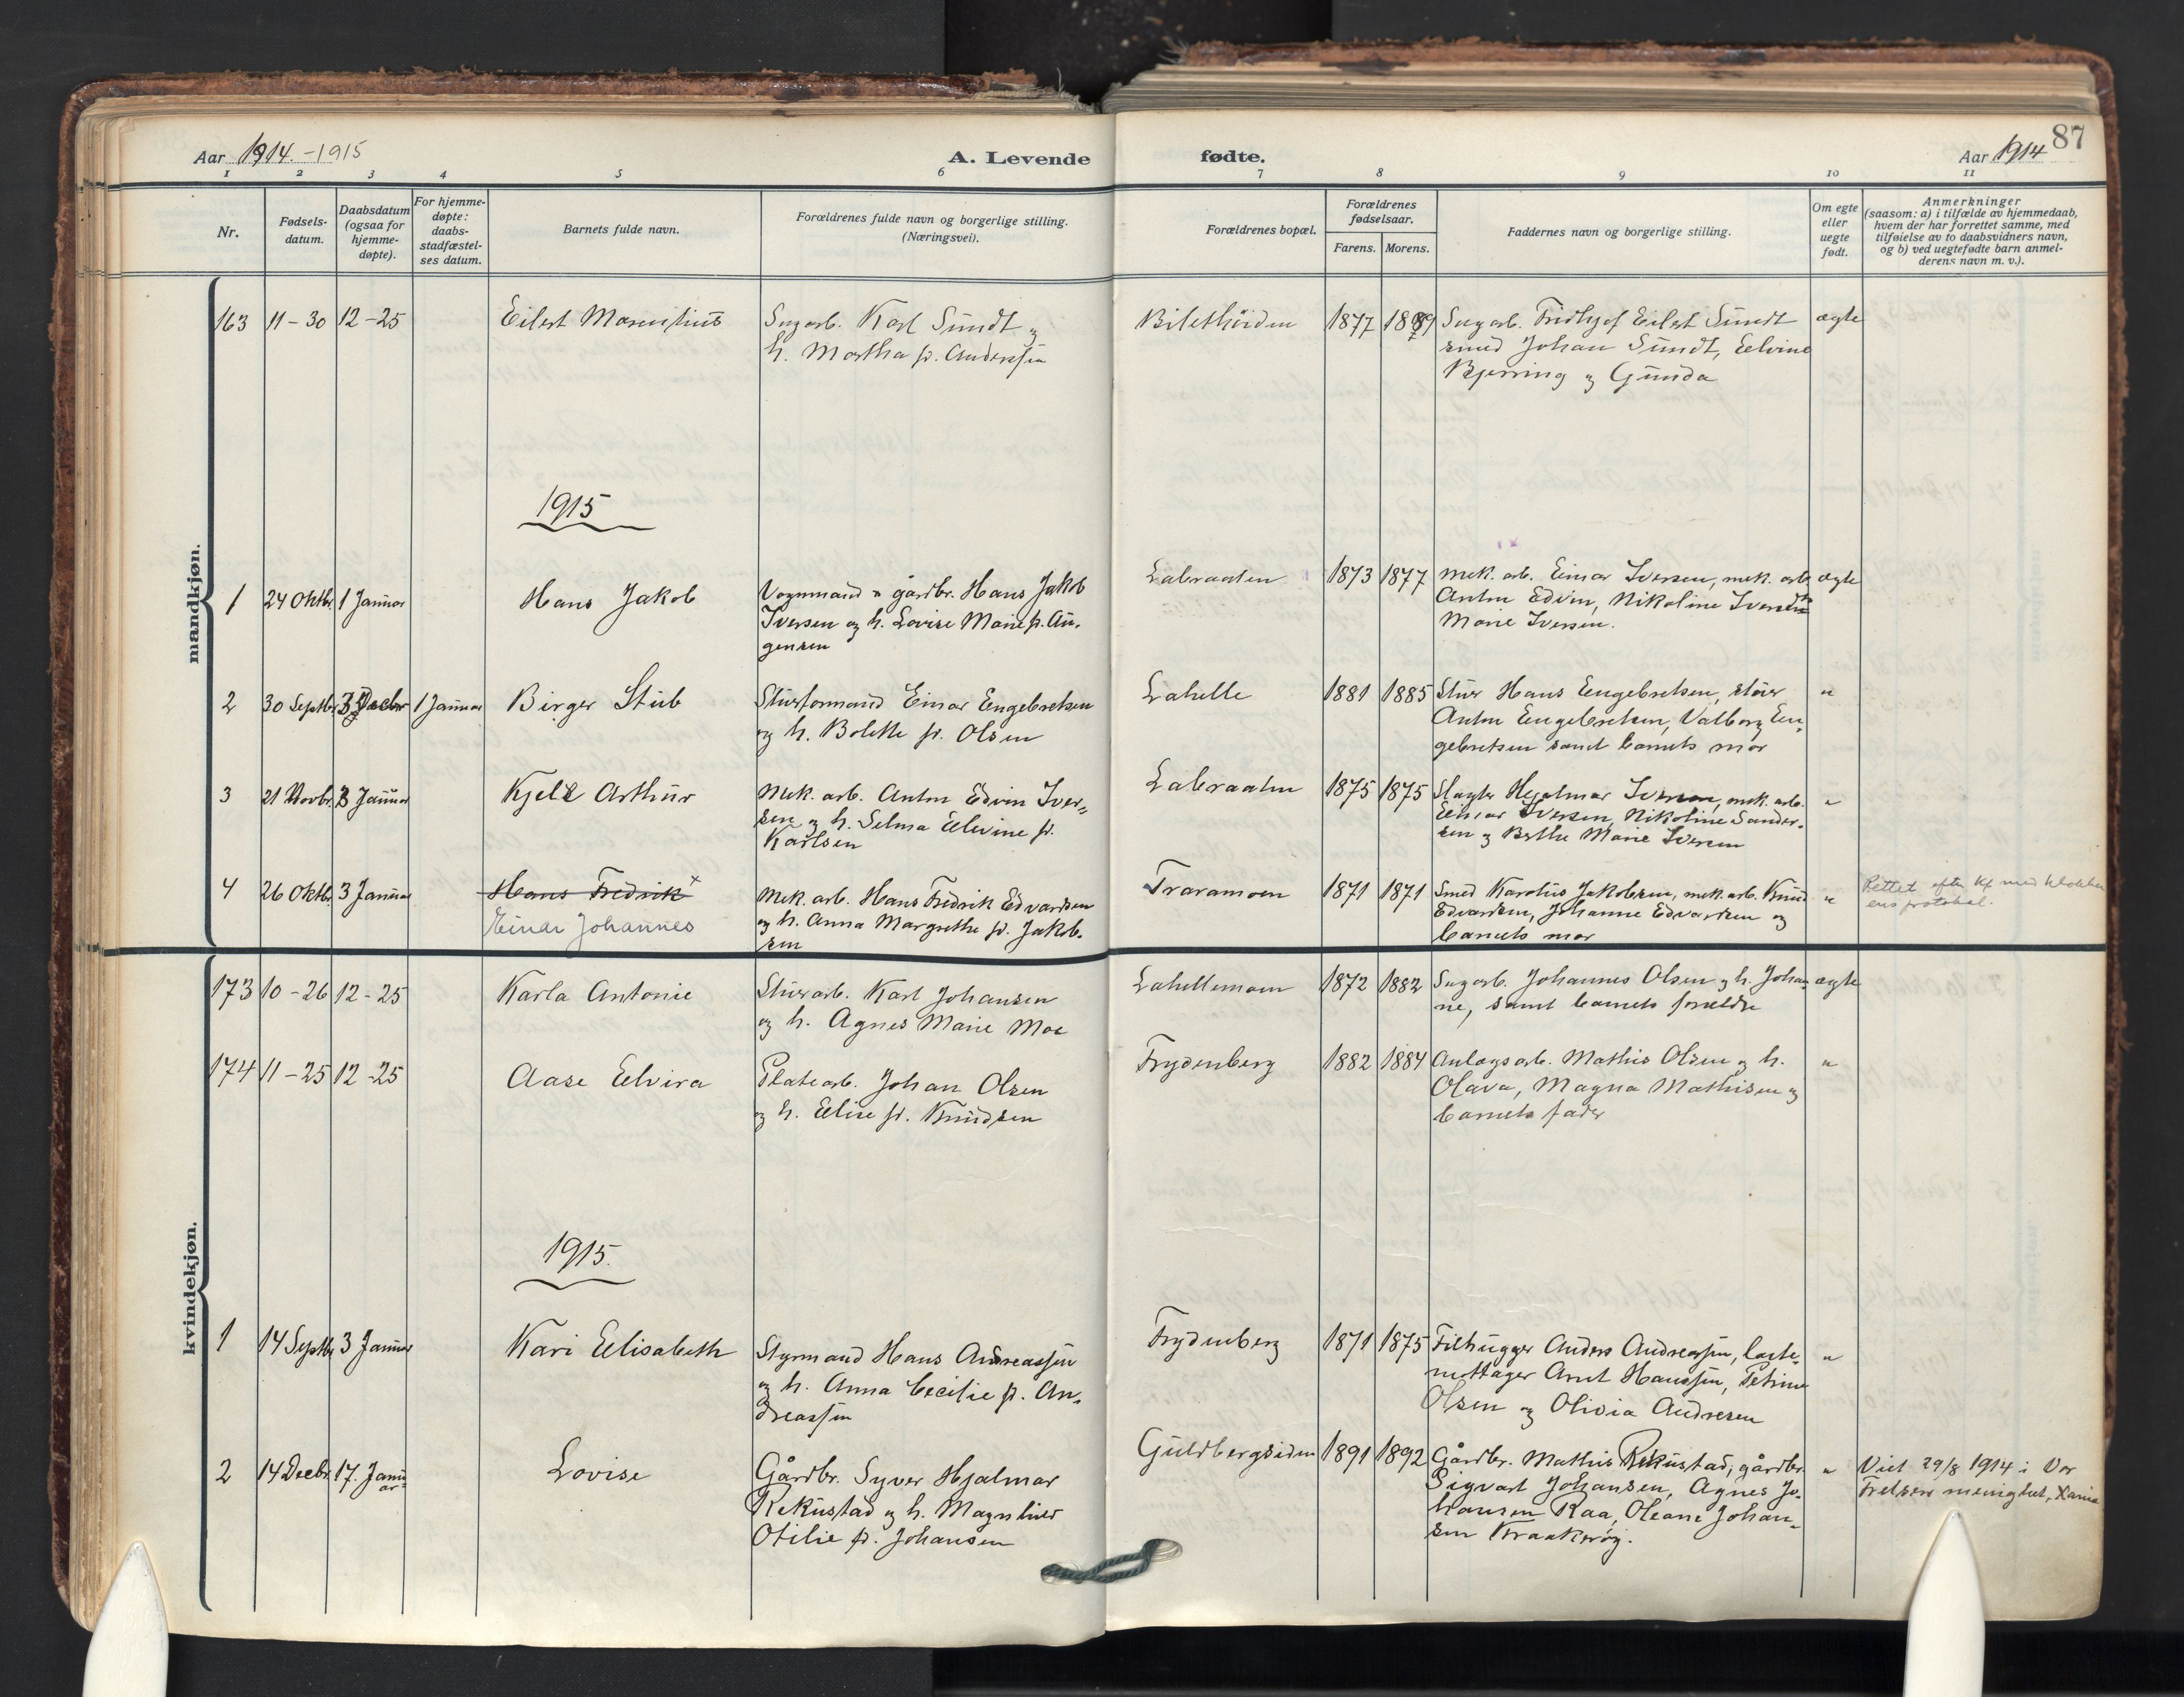 Aar 1914. -1915
A. Levende
fødte.
Aar 1914
87
1 2 3 4 5 6 7 8 9 10 11
Nr.
Fødsels-
datum.
Daabsdatum
(ogsaa for
hjemme-
døpte).
For hjemme-
døpte:
daabs-
stadfæstel-
ses datum.
Barnets fulde navn.
Forældrenes fulde navn og borgerlige stilling.
(Næringsvei).
Forældrenes bopæl.
Forældrenes
fødselsaar.
Farens. Morens.
Faddernes navn og borgerlige stilling.
Om egte
eller
uegte
født.
Anmerkninger
(saasom: a) i tilfælde av hjemmedaab,
hvem der har forrettet samme, med
tilføielse av to daabsvidners navn,
og b) ved uegtefødte barn anmel-
derens navn m. v.).
mandkjøn.
163 11-30 12-25 Eilert Marentius
Sagarb. Karl Sundt og
h. Martha f. Anderssen
1877 1889 Sagarb. Fridtjof Eilert Sundt ægte
smed Johan Sundt, Elvine
Bjerring og Gunda
1915
1 24 Oktbr. 1 Januar Hans Jakob
Vognmand & gårdbr. Hans Jakob
Iversen og h. Lovise Marie f. Au-
gensen
Labraaten 1873 1877 mek. arb. Einar Iversen, mek. arb. ægte
Anton Edvin, Nikoline Iversen
Marie Iversen.
2 30 Septbr 1 Januar Birger Stub
Stuerformand Einar Engebretsen
og h. Bolette f. Olsen
Lahelle 1881 1885 Stuer Hans Engebretsen, stuer "
Anton Engebretsen, Valborg En-
gebretsen samt barnets mor
3 21 Novbr. 3 Januar Kjell Arthur
Mek. arb. Anton Edvin Iver-
sen og h. Selma Elvine f.
Karlsen
Labraaten 1875 1875 Slagter Hjalmar Iversen, mek. arb. "
Einar Iversen, Nikoline Sander-
sen og Berthe Marie Iversen
4 26 Oktbr. 3 Januar Hans Fredrik x
Einar Johannes
Mek. arb. Hans Fredrik Edvardsen
og h. Anna Margrethe f. Jakob-
sen
Traramoen 1871 1871 Smed Karolius Jakobsen, mek. arb. Knud "
Edvardsen, Johanne Edvardsen og
barnets mor
Rettet efter kf med klokker
ens protokol.
kvindekjøn.
173 10-26 12-25 Karla Antonie
Stuerarb. Karl Johansen
og h. Agnes Marie Moe
Lahellemoen 1872 1882 Sagarb. Johannes Olsen og h. Johan- ægte
ne, samt barnets forældre
174 11-25 12-25 Aase Elvira
Platearb. Johan Olsen
og h. Elise f. Knudsen
Frydenberg 1882 1884 Anlægsarb. Mathis Olsen og h. "
Olava, Magna Mathisen og
barnets fader
1915.
1 14 Septbr 3 Januar Kari Elisabeth
Styrmand Hans Andreassen
og h. Anna Cecilie f. An-
dreassen
Frydenberg 1871 1875 Filhugger Anders Andreassen, laste- "
mottager Arnt Hanssen, Petrine
Olsen og Olivia Andresen
2 14 Decbr. 17. Janu-
ar
Lovise
Gårdbr. Syver Hjalmar
Rekustad og h. Magnhild
Otilie f. Johansen
Guldbergsiden 1891 1892 Gårdbr. Mathis Rekustad, gårdbr. "
Sigvart Johansen, Agnes Jo-
hansen Raa, Oleane Johan-
sen Kraakerøy.
Viet 29/8 1914 i Vor
Frelsers menighet, Xania